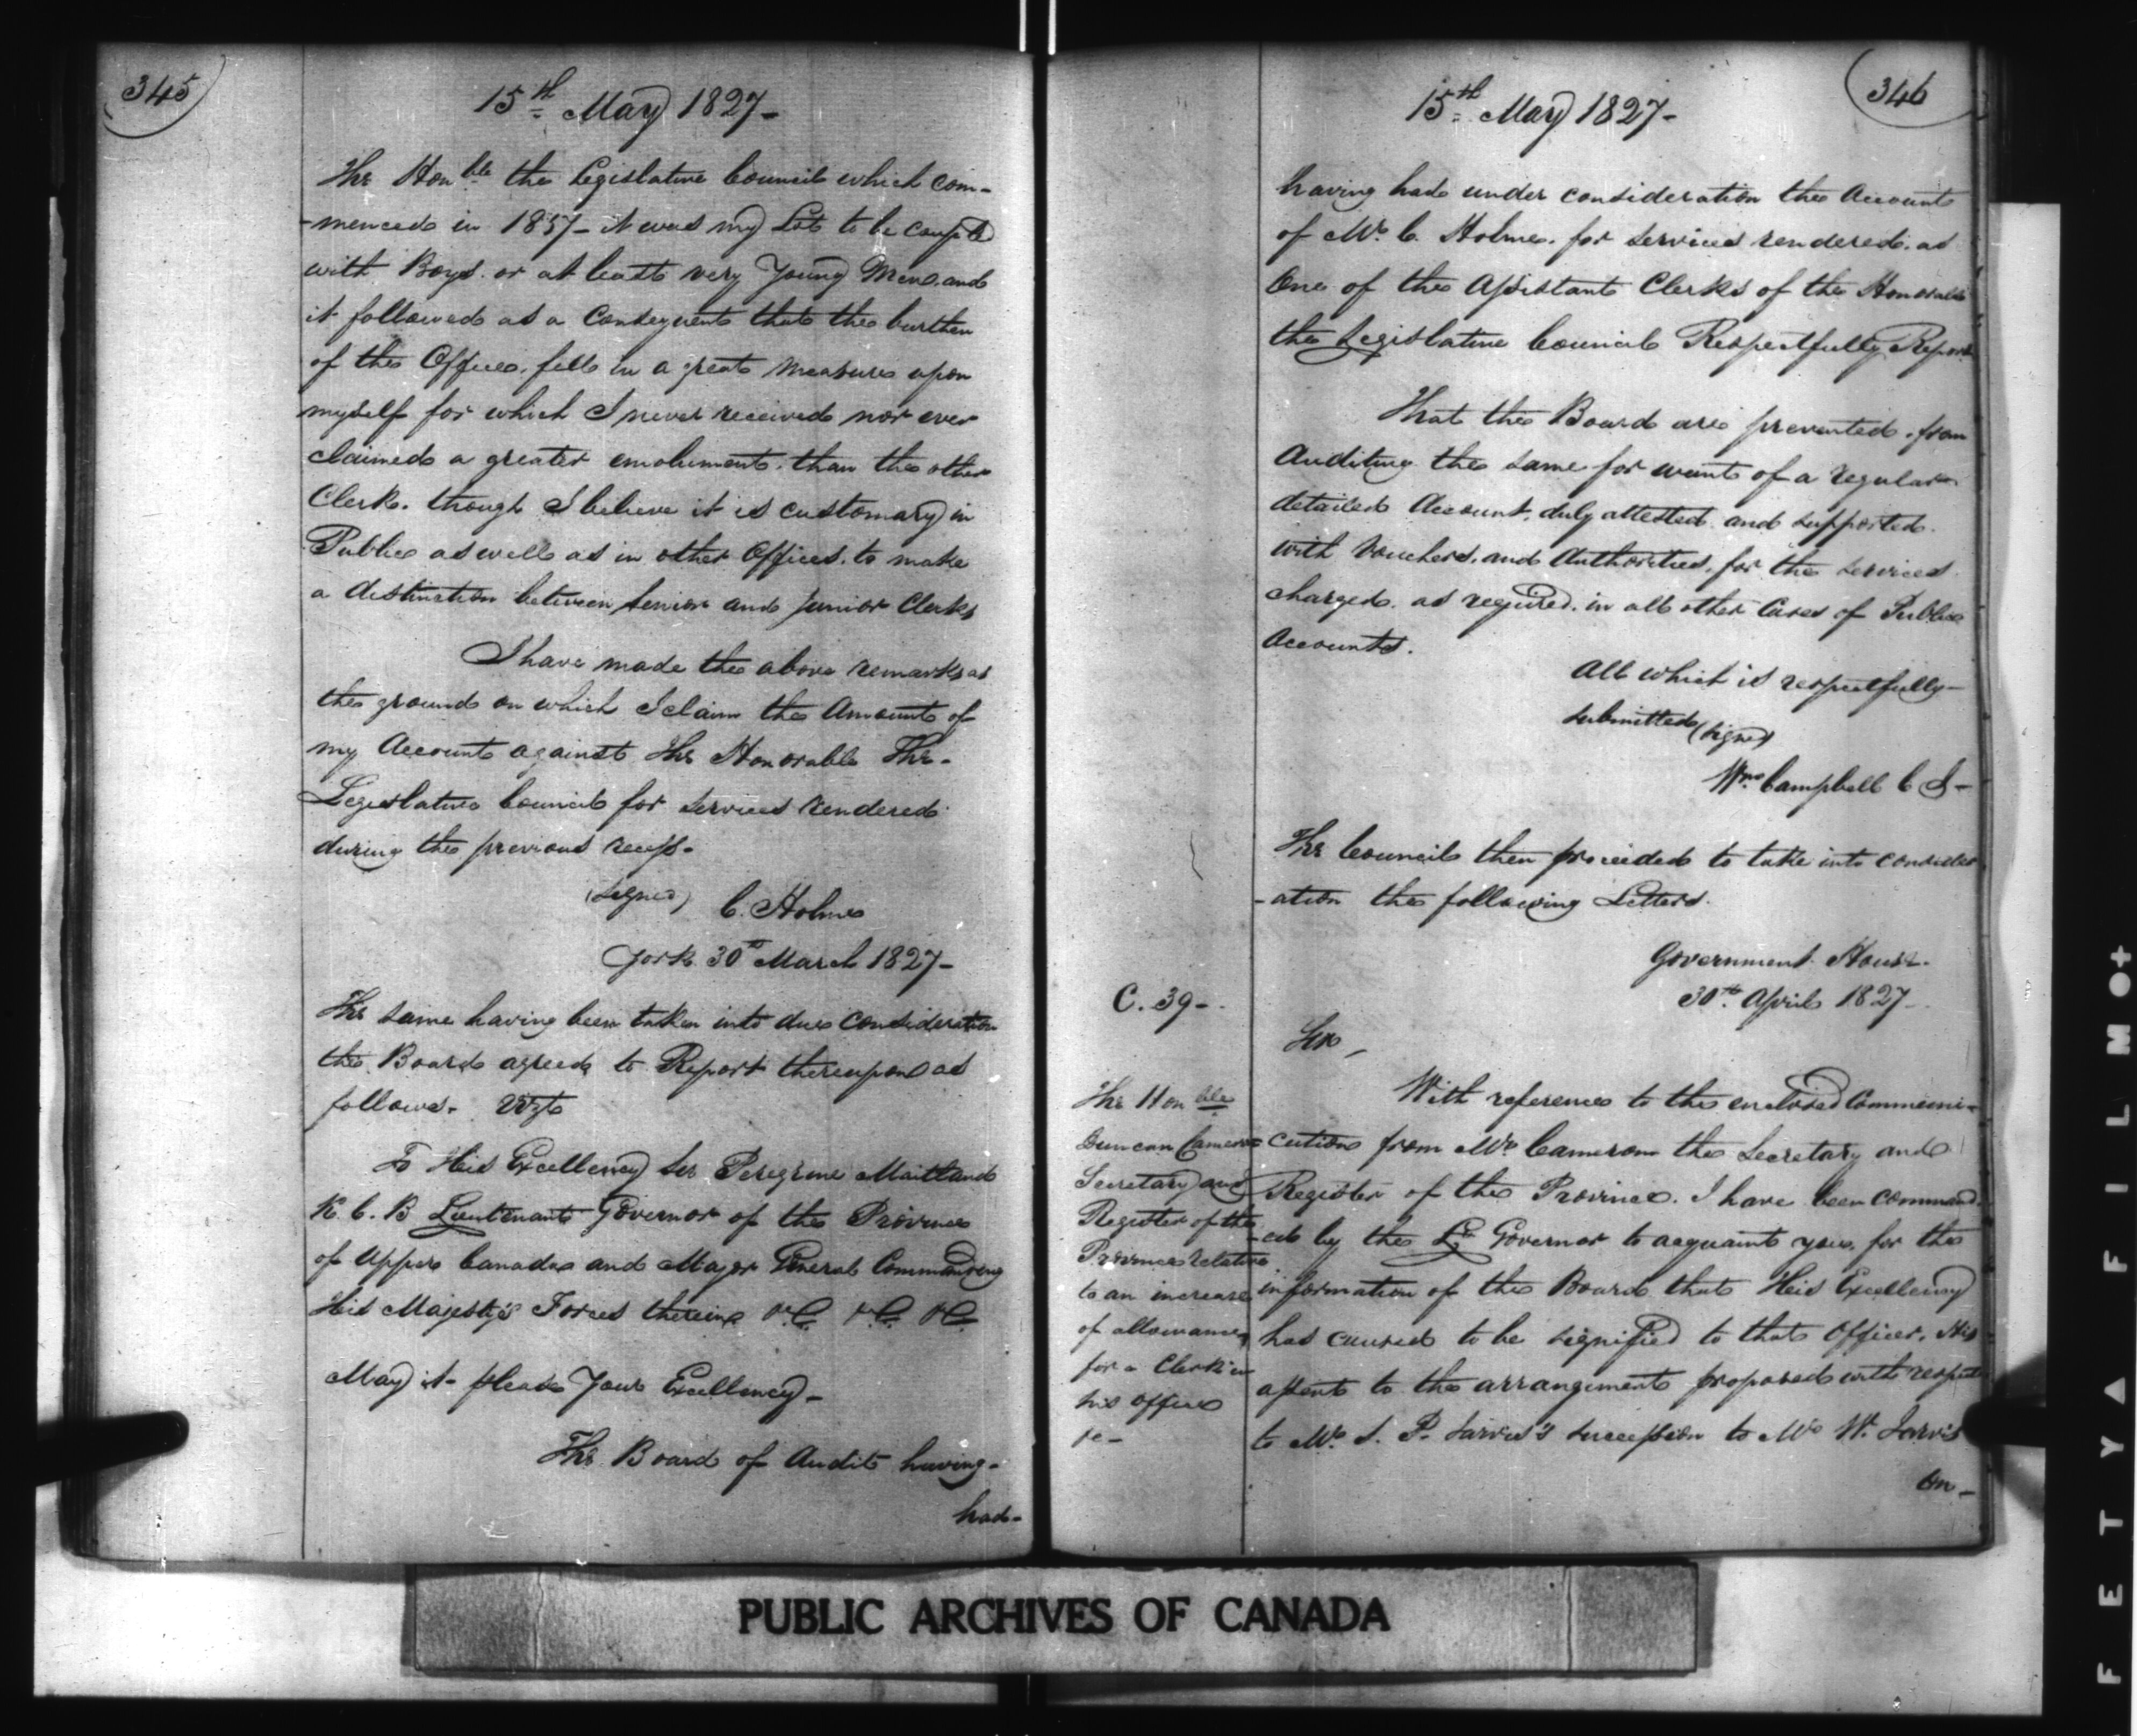 345
15th May 1827-
The Honble the Legislative Council which com-
-menced in 1817- it was my Lot to be coupled
with Boys. or at least very Young Men. and
it followed as a Consequent that the burthen
of the Office, fell in a great measure upon
myself for which I never received nor ever
claimed a greater emolument. than the other
Clerk. though I believe it is customary in
Public as well as in other Offices. to make
a distinction between Senior and Junior Clerks
I have made the above remarks as
the ground on which I claim the Amount of
my Account against The Honorable The-
Legislative Council for services rendered
during the previous recess-
(Signed) C. Holme
York 30th March 1827-
The same having been taken into due consideration
the Board agreed to Report thereupon as
follows. Vizt
To His Excellency Sir Peregrine Maitland
K. C. B Lieutenant Governor of the Province
of Upper Canada and Major General Commanding
His Majesty's Forces therein &C &C &C
May it please Your Excellency-
The Board of Audit having-
had-
346
15th May 1827-
having had under consideration the Account
of Mr. C. Holme. for services rendered. as
One of the Assistant Clerks of the Honorable
the Legislative Council Respectfully Report
That the Board are prevented. from
Auditing the same for want of a regular
detailed Account, duly attested and supported.
with Vouchers. and Authorities, for the services
charged. as required. in all other Cases of Public
Accounts.
All which is respectfully-
submitted (signed)
Wm. Campbell C J-
The Council then proceeded to take into consider
-ation the following Letters.
Government House-
30th April 1827-
C. 39-
Sir,
The Honble
Duncan Cameron
Secretary and
Register of the
Province relative
to an increase
of allowance
for a Clerk in
his office
&c-
With reference to the enclosed Communi-
cation from Mr. Cameron the Secretary and
Register of the Province. I have been command
-ed by the Lt. Governor to acquaint you, for the
information of the Board that His Excellency
has caused to be signified to that Officer, His
assent to the arrangement proposed with respect
to Mr. S. P. Jarvis's succession to Mr W. Jarvis
on-
PUBLIC ARCHIVES OF CANADA
FETY▲FILM●+